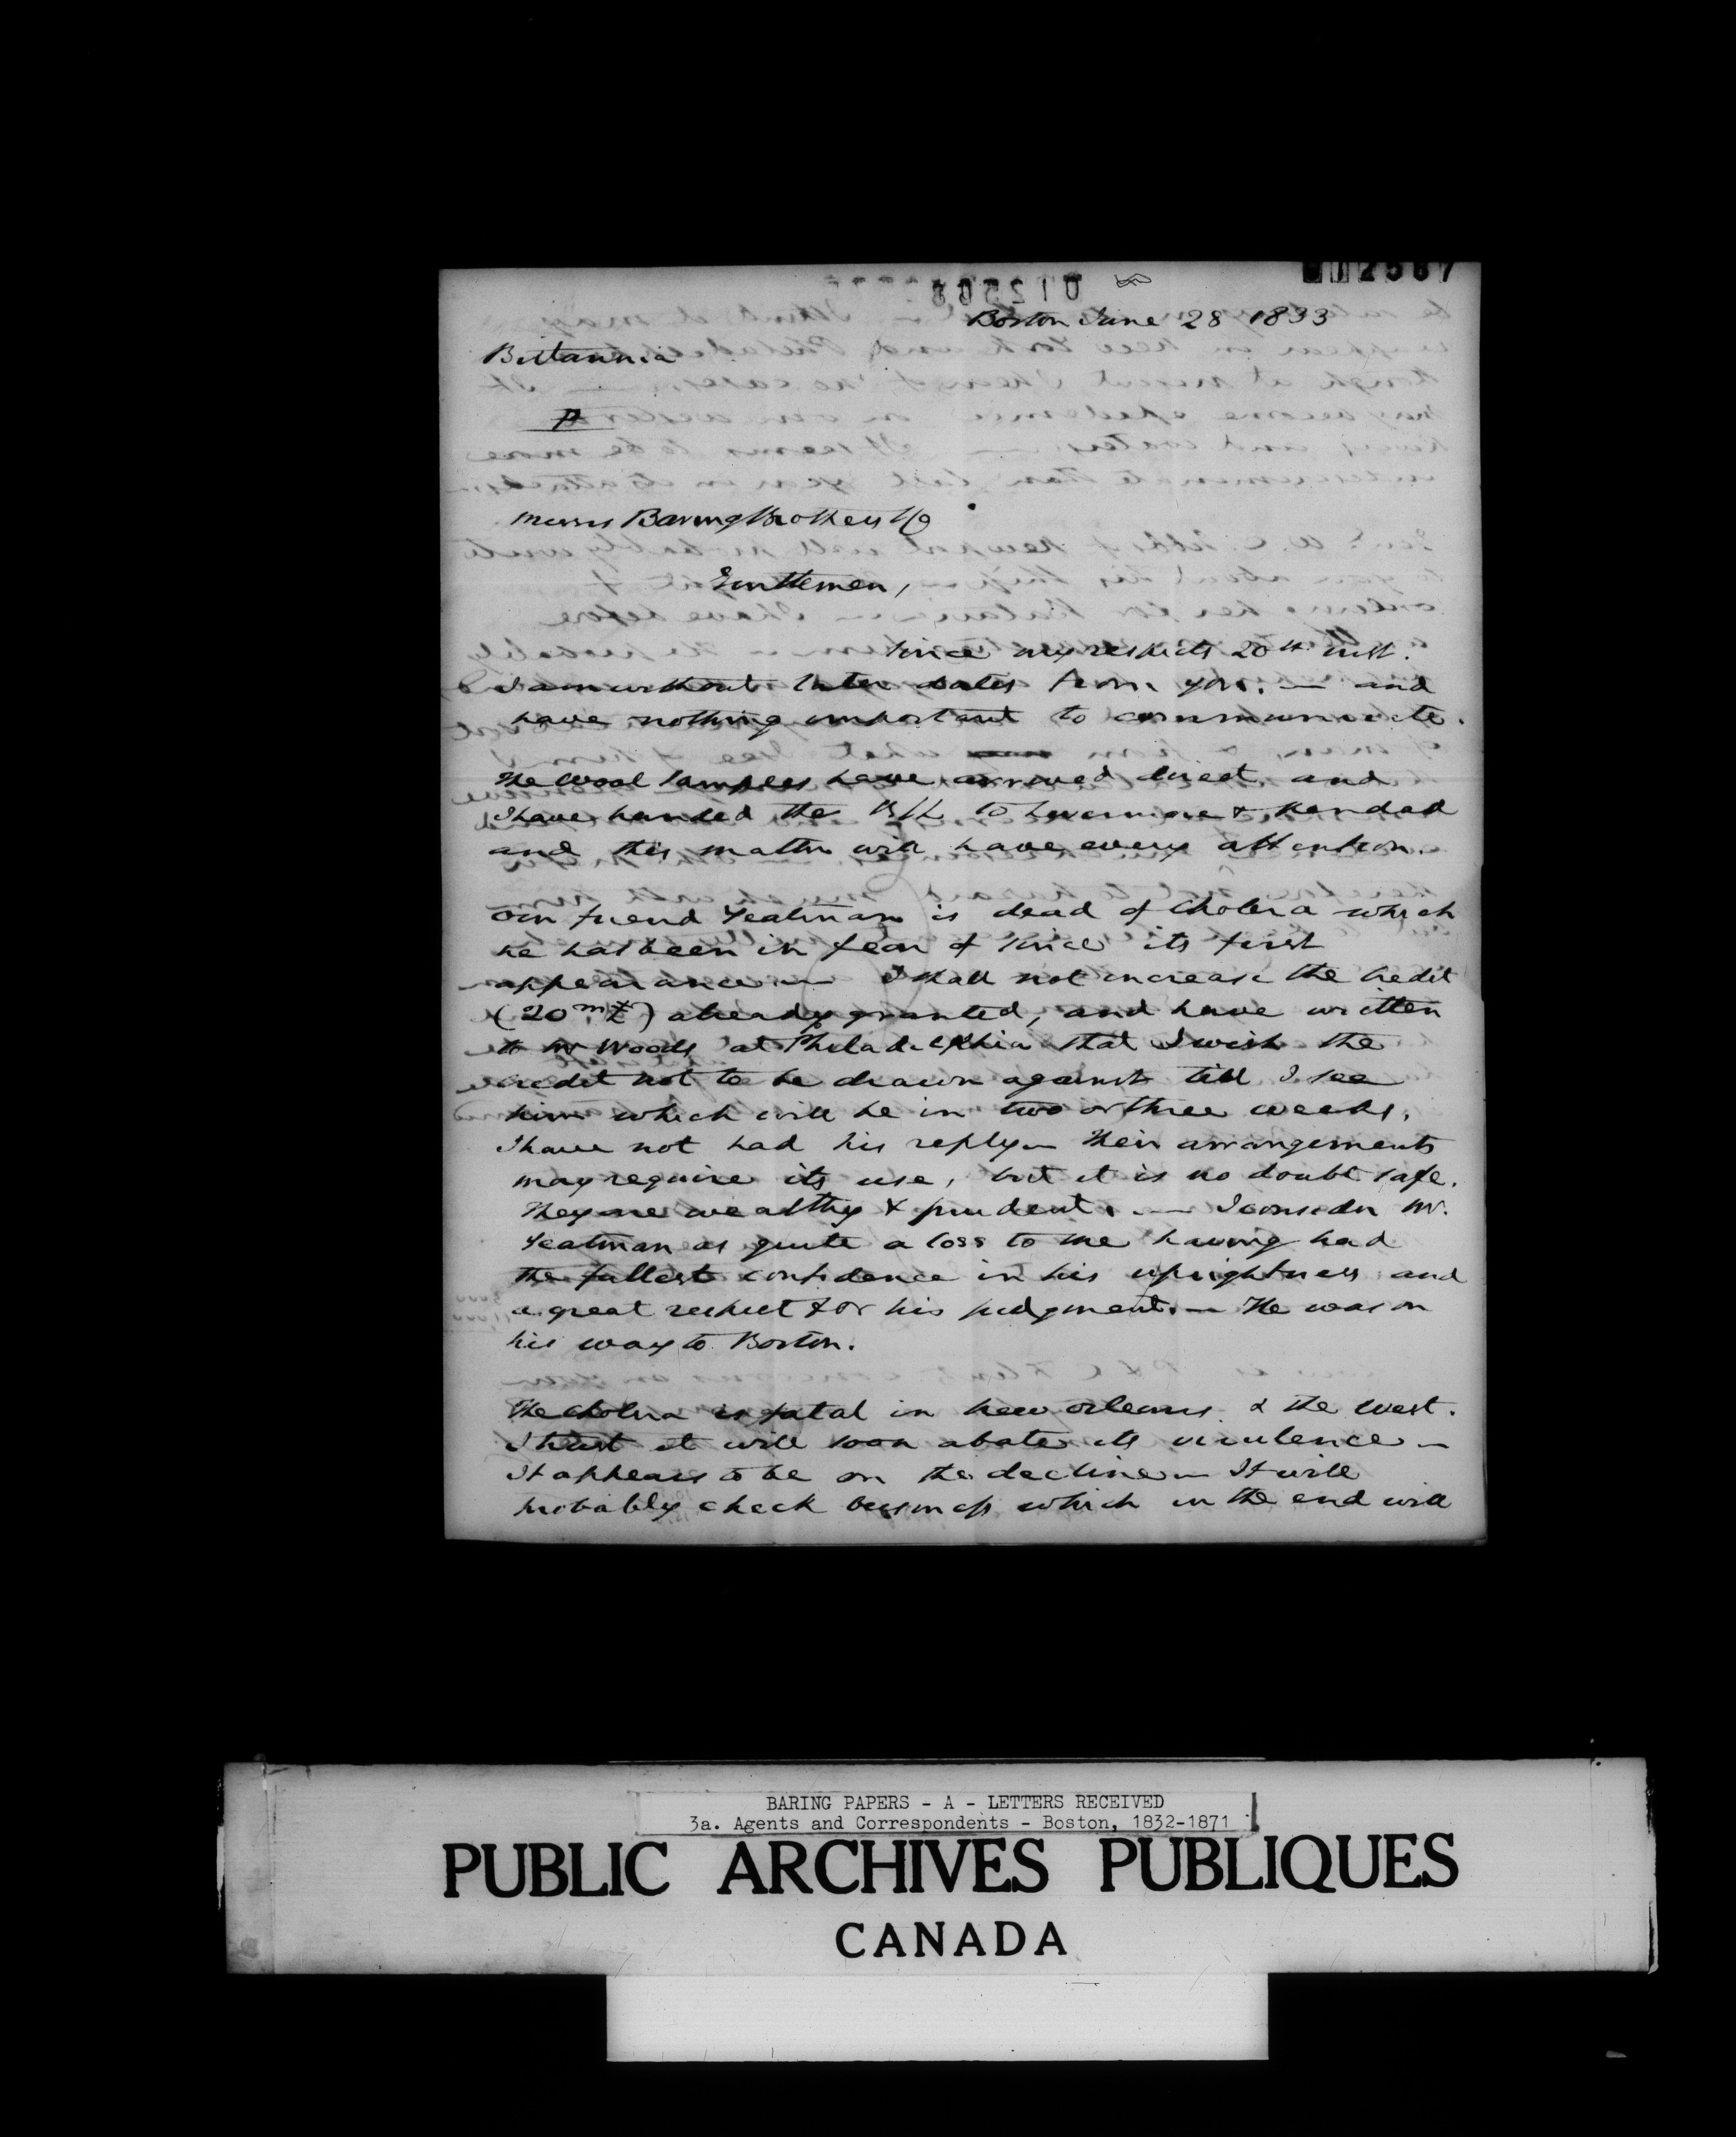 012567
Boston June 28 1833
Brittannia
Messrs Baring Brothers & Co
Gentlemen,
Since my respects 20th inst.
I am without later dates from you. — and
have nothing important to communicate.
The Wool Samples have arrived direct, and
I have handed the B/L to Livermore & Kendall
and this matter will have every attention.
Our friend Yeatman is dead of Cholera which
he has been in fear of since its first
appearance — I shall not increase the credit
(20 m £) already granted, and have written
to Mr Woods at Philadelphia that I wish the
credit not to be drawn against till I see
him which will be in two or three weeks.
I have not had his reply — Their arrangements
may require its use, but it is no doubt safe.
They are wealthy & prudent. — I consider Mr.
Yeatman as quite a loss to me having had
the fullest confidence in his uprightness and
a great respect for his judgment. — He was on
his way to Boston.
The Cholera is fatal in New Orleans & the West.
I trust it will soon abate its virulence —
It appears to be on the decline — It will
probably check business which in the end will
BARING PAPERS - A - LETTERS RECEIVED
3a. Agents and Correspondents - Boston, 1832-1871
PUBLIC ARCHIVES PUBLIQUES
CANADA